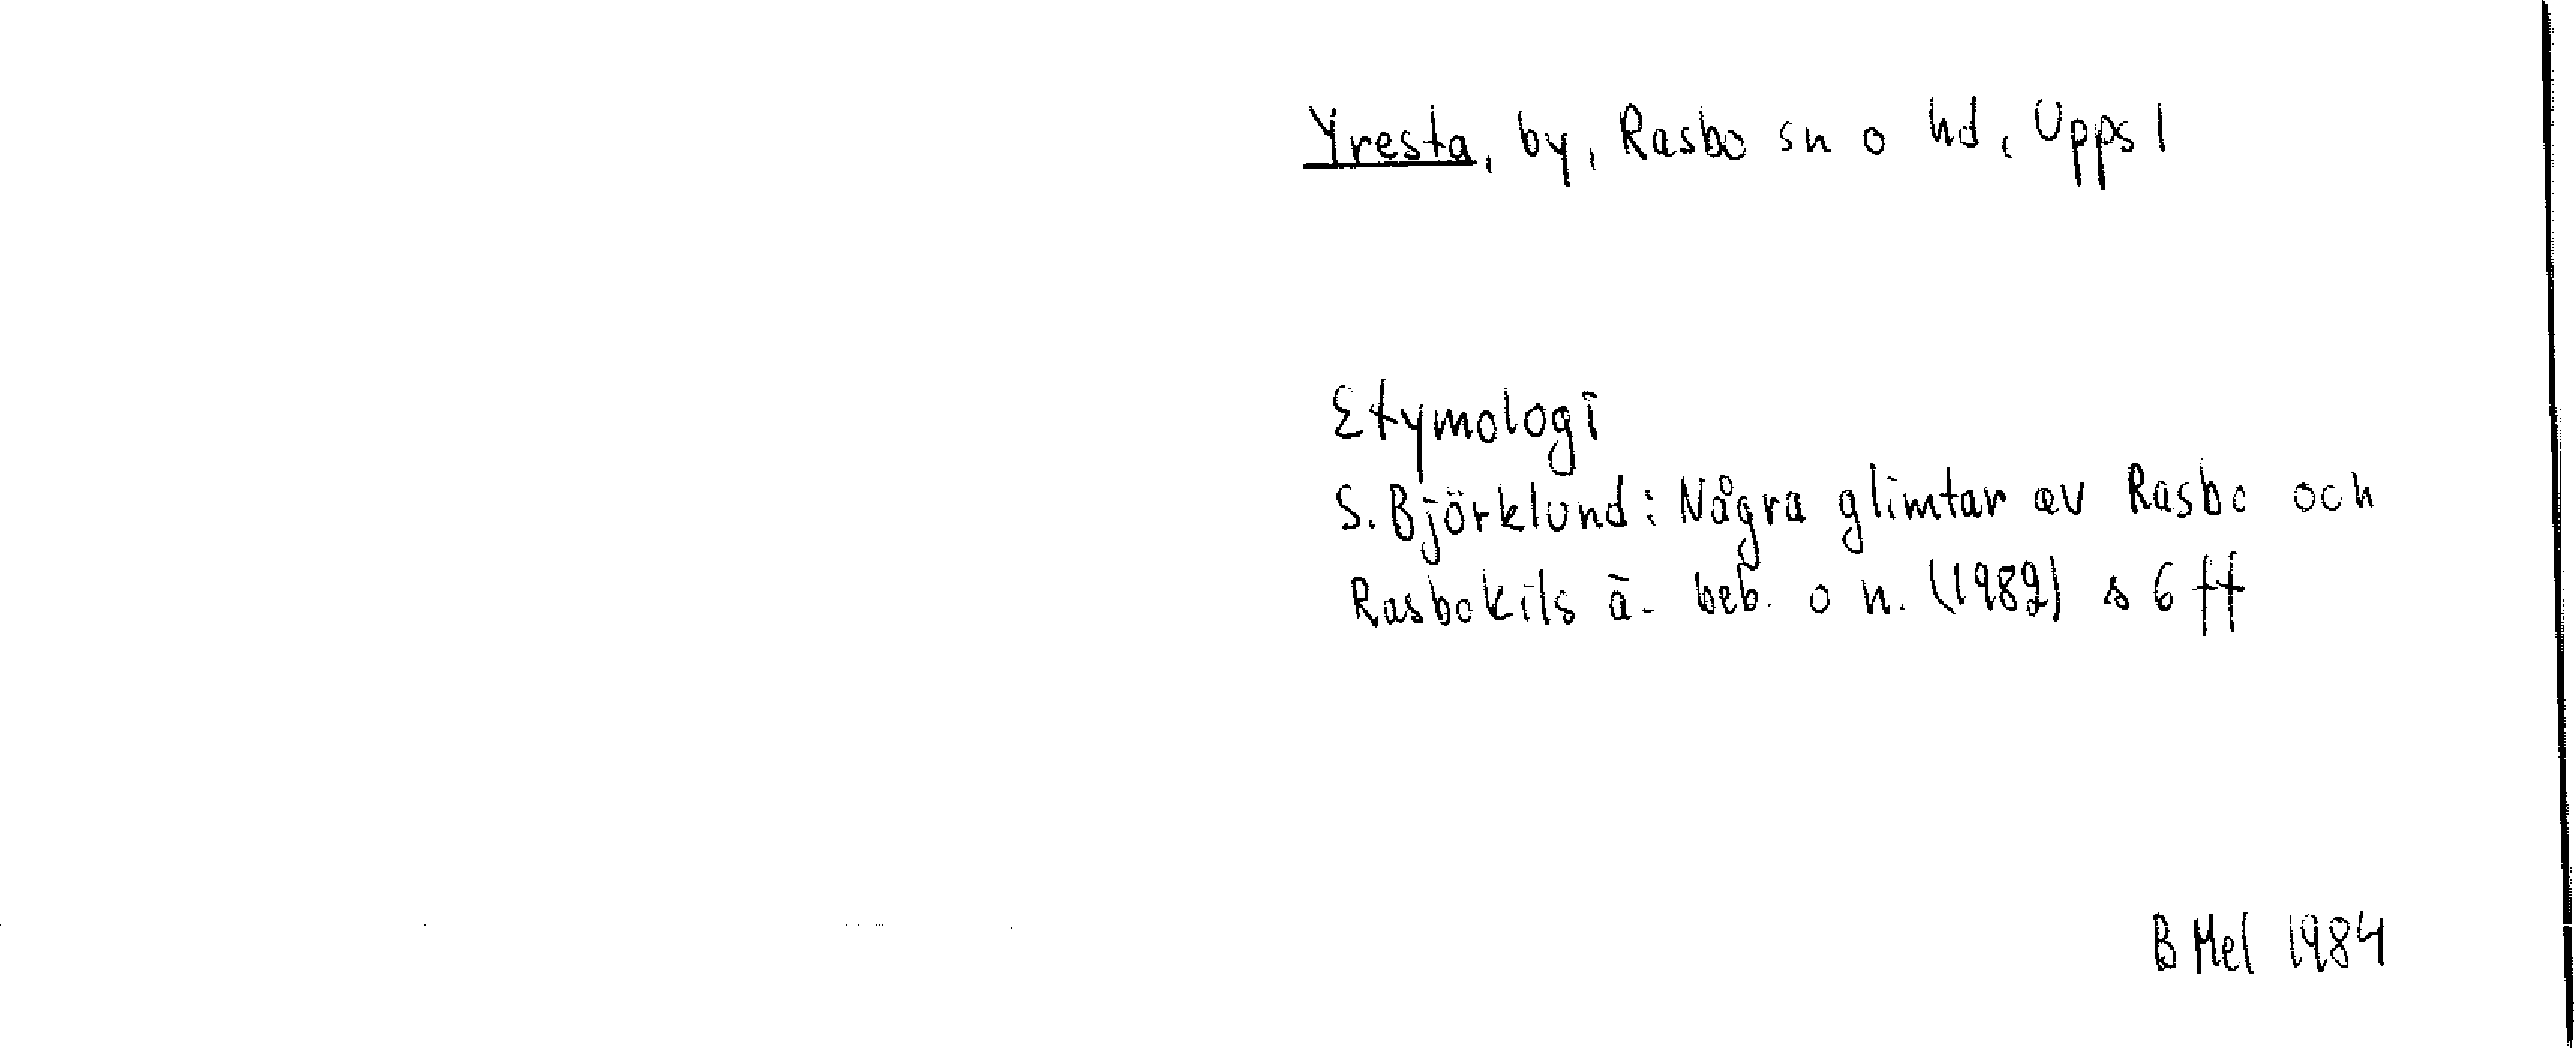 Yresta, by, Rasbo sn o hd, Upps l
Etymologi
S. Björklund: Några glimtar av Rasbo och
Rasbokils ä. beb. o n. (1982) s 6 ff
B Mel 1984